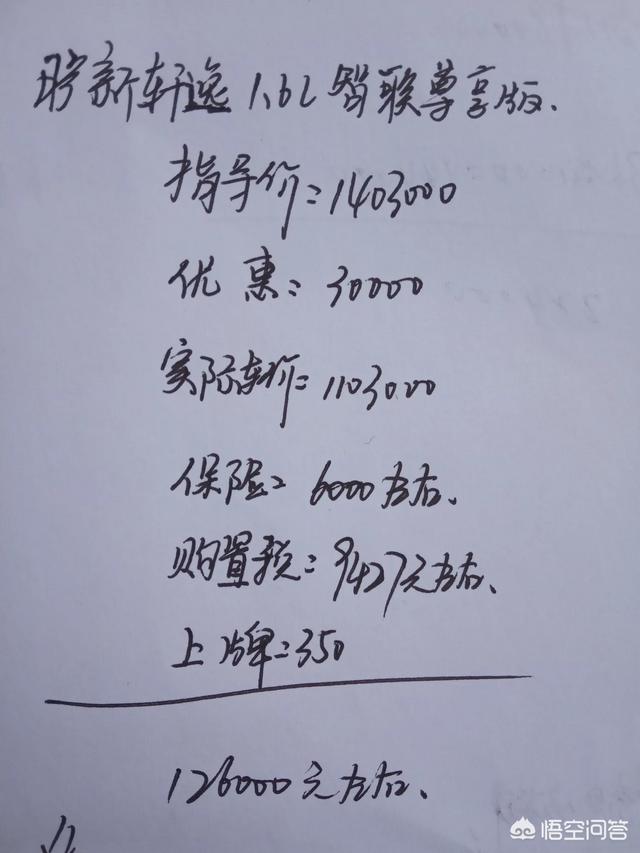 新轩逸1.6L智联尊享版.
指导价=1403000
优惠=30000
实际车价=1103000
保险=6000左右.
购置税=9427元左右.
上牌=350
126000元左右.
悟空问答